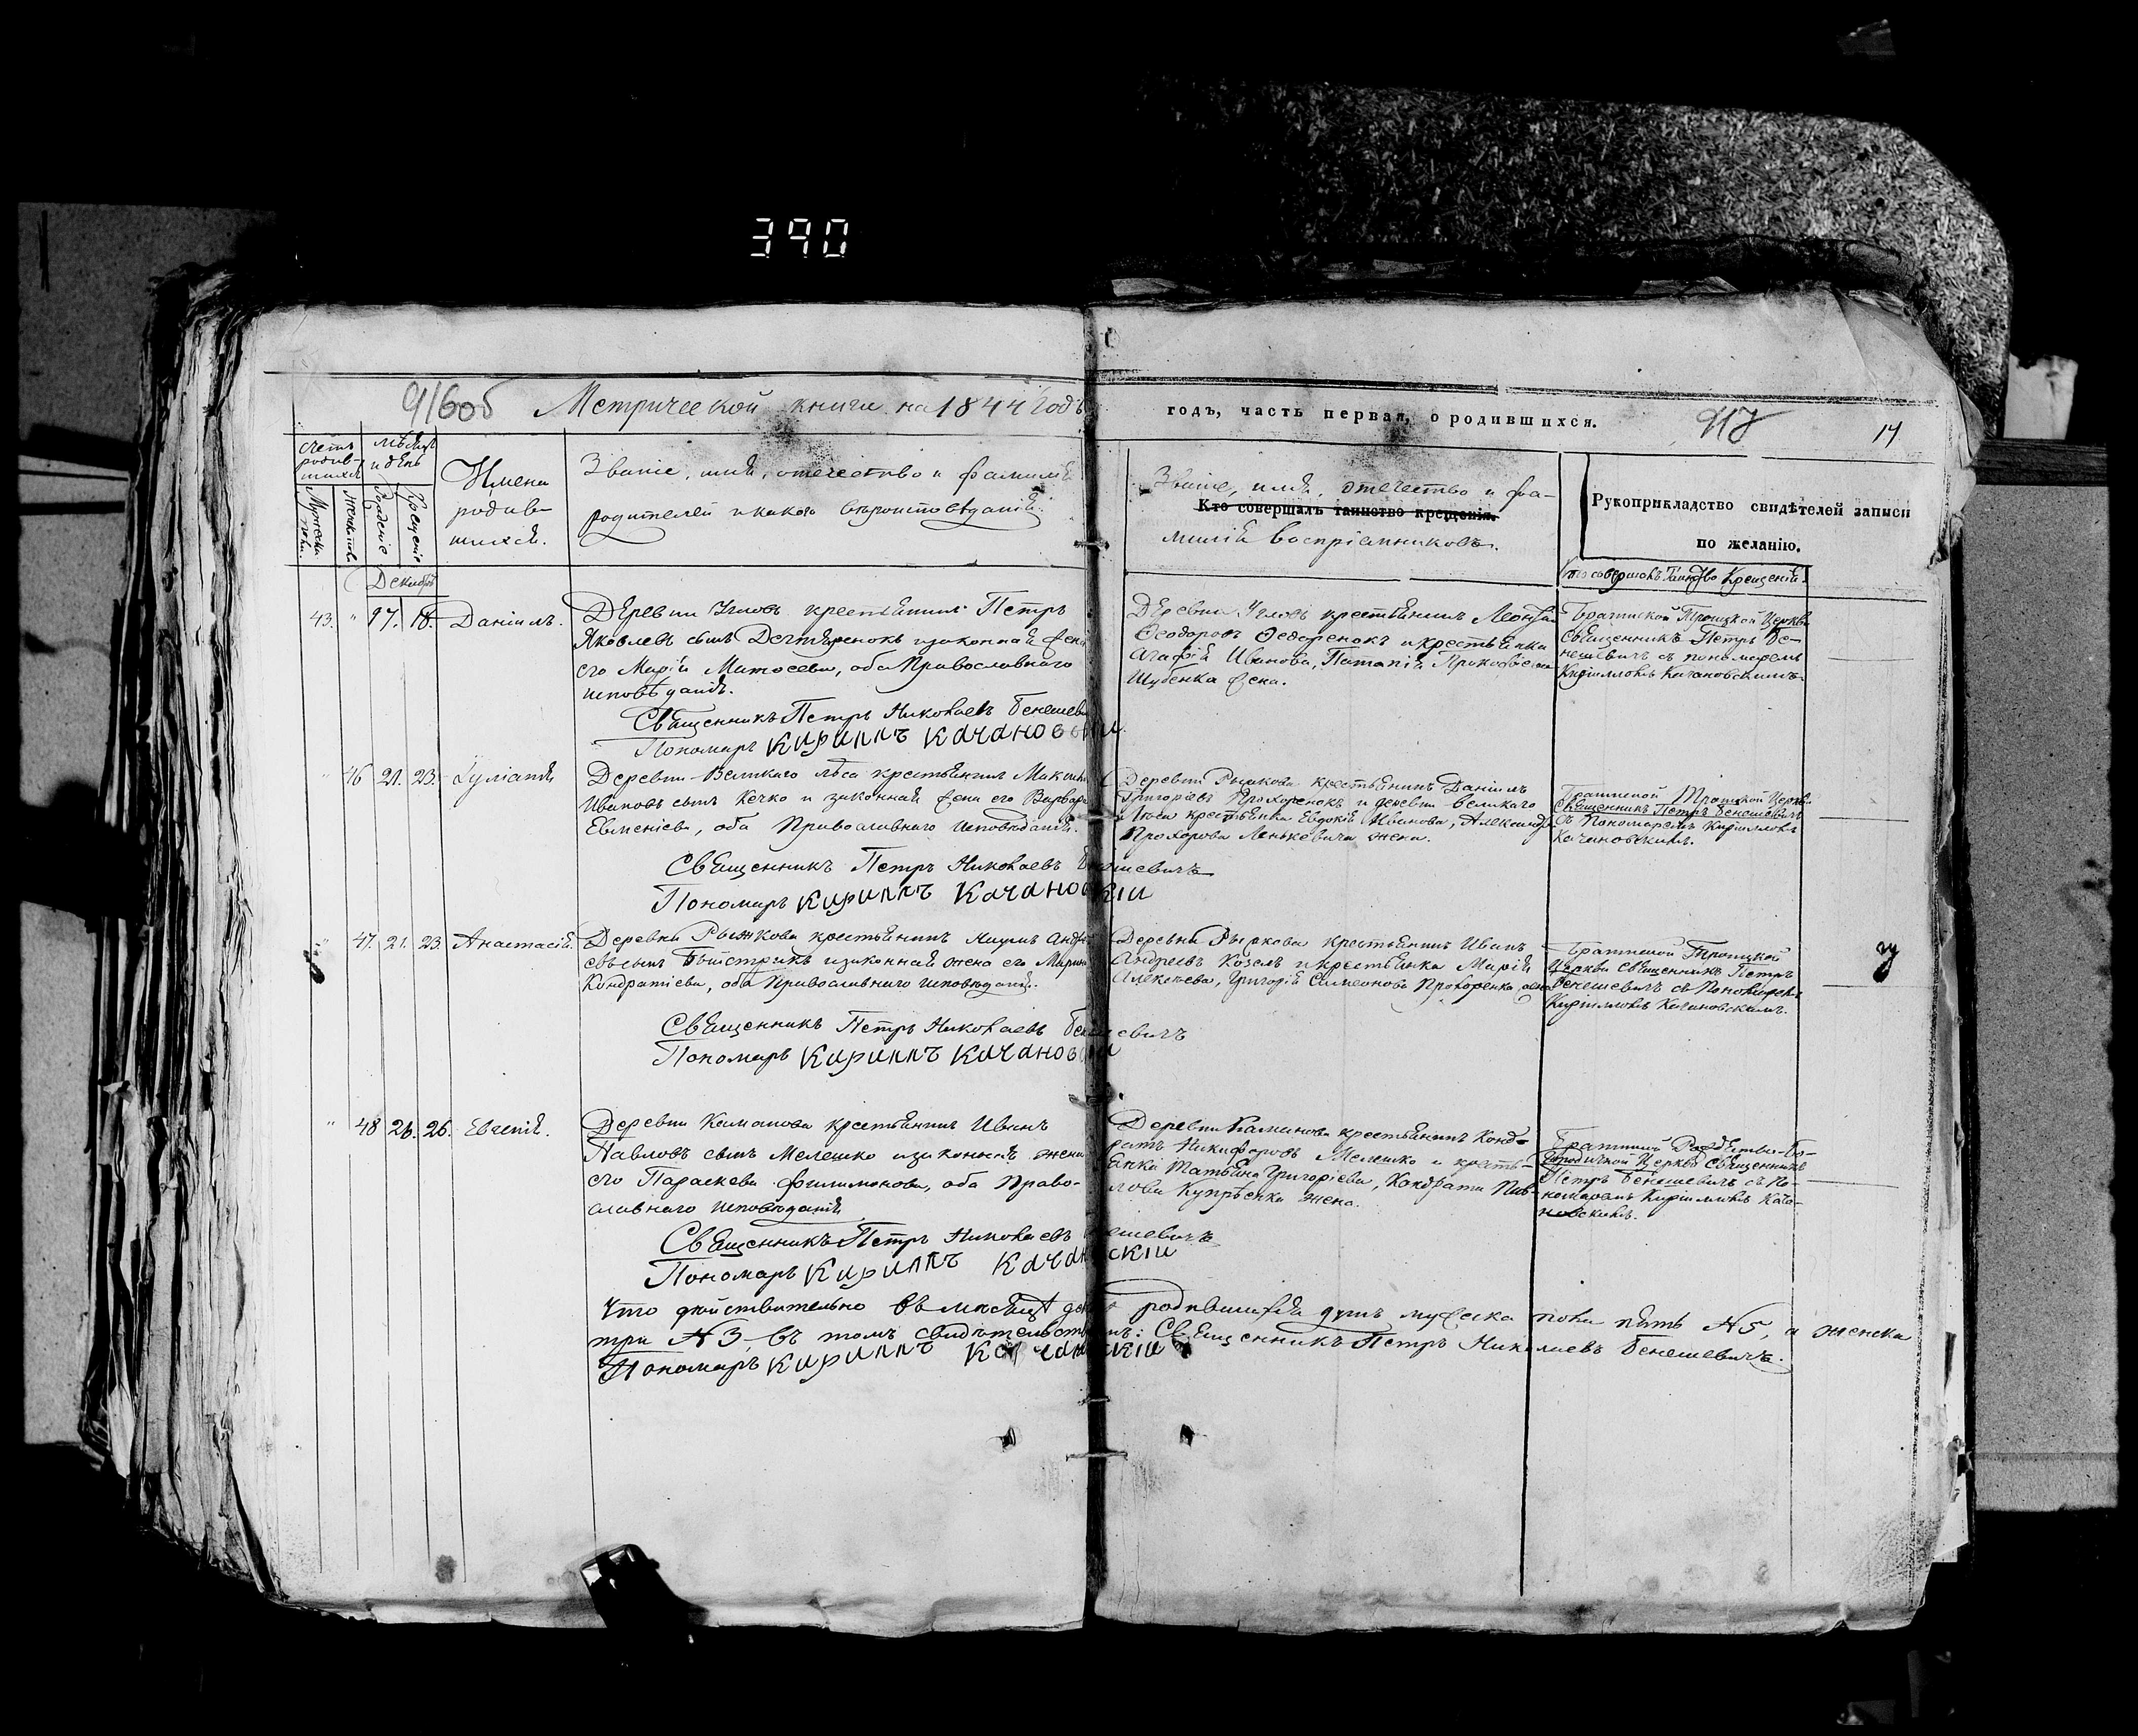 390
916об Метрической книги на 1844 Годъ
годъ, часть первая, о родившихся.
917
14
Счетъ родив-шихся
Мѣсяцъ и день
Имена
родив-
шихся.
Званіе, имя, отчество и фамилія
родителей и какого вѣроисповѣданія.
Мужеска пола.
Женска пола
Рожденіе
Крещеніе
Званіе, имя, отчество и фа-
Кто совершалъ таинство крещенія.
милія воспріемниковъ.
Рукоприкладство свидѣтелей записи
по желанію.
Кто совершалъ Таинство Крещенія.
Декабрь
43. " 17. 18. Даніилъ.
Деревни Углов крестьянинъ Петръ
Яковлевъ сынъ Дегтяренокъ и законная жена
его Марія Матѳеева, оба Православного
исповѣданія.
Священникъ Петръ Николаевъ Бенешевичъ
Пономаръ Кириллъ Качановскіи
Деревни Углов крестьянинъ
Ѳеодоровъ Ѳедоренокъ и крестьянка
Агафія Иванова, Потапія Прокофьева
Шубенка жена.
Братской Троицкой Церкви
Священникъ Петръ Бе-
нешевичъ съ пономаремъ
Кирилломъ Качановскимъ.
" 46 21. 23. Іуліанія
Деревни Великаго лѣса крестьянинъ Максимъ
Ивановъ сынъ Кечко и законная жена его Варвара
Евменіева, оба Православнаго исповѣданія.
Священникъ Петръ Николаевъ Бенешевичъ
Пономаръ Кириллъ Качановскіи
Деревни Рыжкова крестьянинъ Даніилъ
Григоріевъ Прохоренокъ и деревни Великаго
Лѣса крестьянка Евдокія Иванова, Александра
Прохорова Ленькевича жена.
Братской Троицкой Церкви
Священникъ Петръ Бенешевичъ
съ Пономаремъ Кирилломъ
Качановскимъ.
" 47. 21. 23. Анастасія.
Деревни Рыжкова крестьянинъ Наумъ Андре-
евъ сынъ Быстрикъ и законная жена его Марина
Кондратіева, оба Православнаго исповѣданія.
Священникъ Петръ Николаевъ Бенешевичъ
Пономаръ Кириллъ Качановскіи
Деревни Рыжкова крестьянинъ Иванъ
Андреевъ Козелъ и крестьянка Марія
Алексѣева, Григорія Симеонова Прохоренка жена
Братской Троицкой
Церкви священникъ Петръ
Бенешевичъ съ Пономаремъ
Кирилломъ Качановскимъ.
" 48 26. 26. Евгенія.
Деревни Каманова крестьянинъ Иванъ
Павловъ сынъ Мелешко и законная жена
его Параскева Филимонова, оба Право-
славнаго исповѣданія
Священникъ Петръ Николаевъ Бенешевичъ
Пономаръ Кириллъ Качановскіи
Деревни Каманова крестьянинъ Конд-
ратъ Никифоровъ Мелешко и кресть-
янка Татьяна Григоріева, Кондрата Пав-
лова Купрѣенка жена.
Братской Рождество-Бо-
городичной Церкви Священникъ
Петръ Бенешевичъ съ По-
номаремъ Кирилломъ Кача-
новскимъ.
Что дѣйствительно въ мѣсяцѣ декабрѣ родившихся душъ мужеска пола пять №5, а женска
три №3, въ томъ свидѣтельствуемъ: Священникъ Петръ Николаевъ Бенешевичъ.
Пономаръ Кириллъ Качановскіи